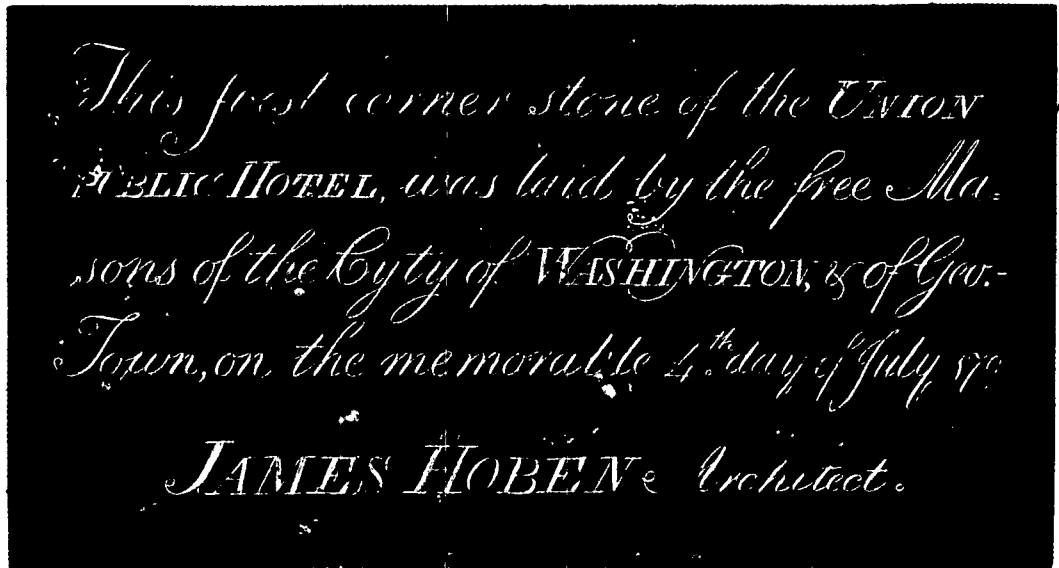 This first corner stone of the UNION
PUBLIC HOTEL, was laid by the free Ma=
sons of the Cyty of WASHINGTON, & of Geo:-
Town, on the memorable 4th day of July
JAMES HOBEN Architect.